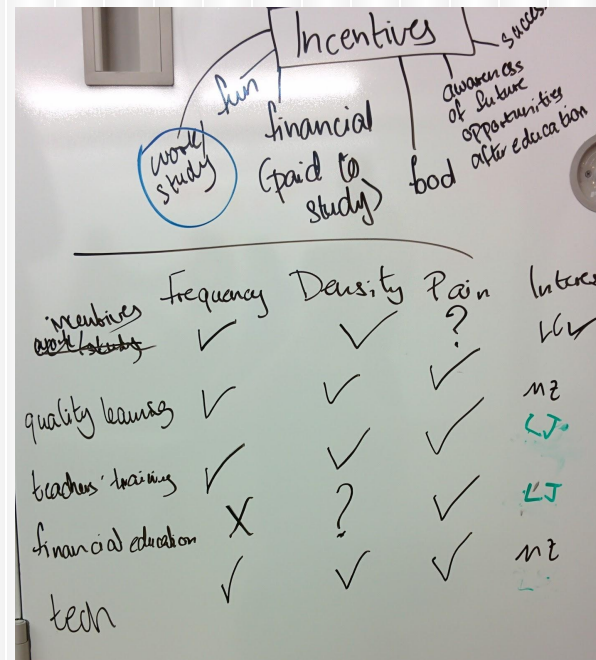 Incentives
fun
work/
study
financial
(paid to
study)
food
awareness
of future
opportunities
after education
Frequency Density Pain
incentives ✓ ✓ ?
work/study
quality learning ✓ ✓ ✓ MZ
LJ
teachers' training ✓ ✓ ✓ LJ
financial education X ? ✓ MZ
tech ✓ ✓ ✓